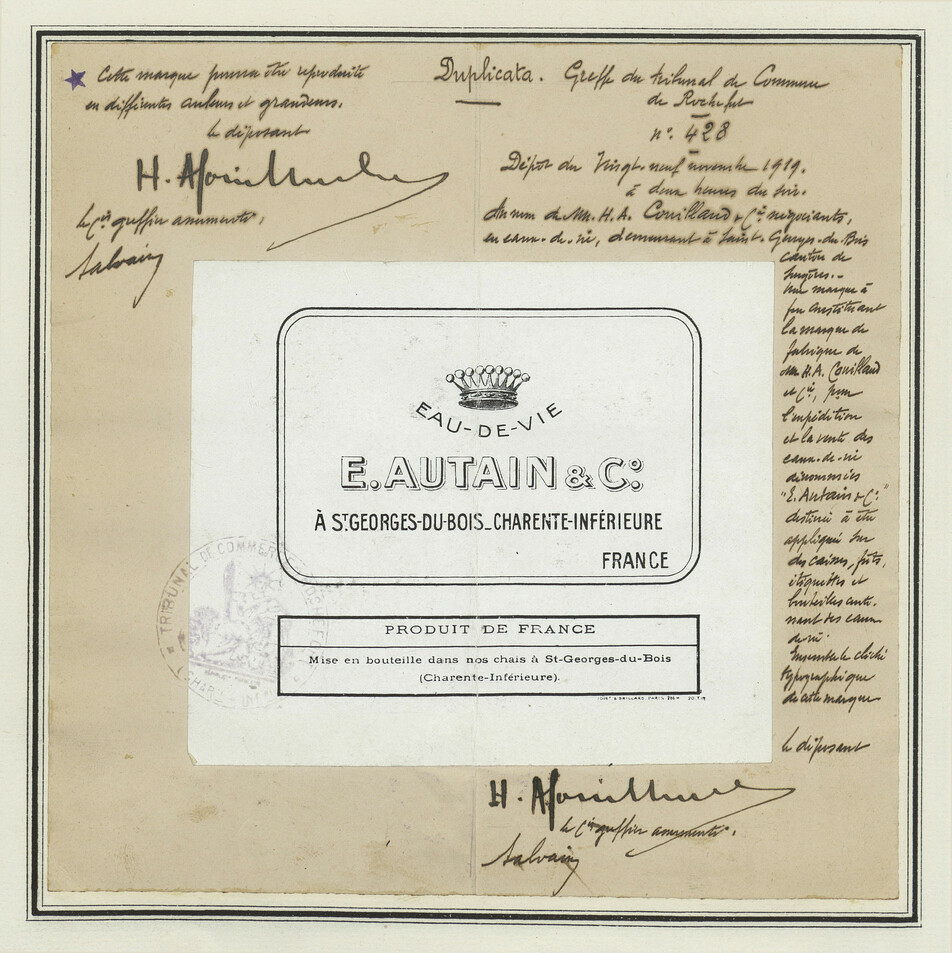 Cette marque pourra être reproduite
en différentes couleurs et grandeurs.
le déposant
le Cis greffier assermenté,
Salvain
Duplicata. Greffe du tribunal de Commerce
de Rochefort
n°. 428
Dépôt du Vingt-neuf novembre 1919.
à deux heures du soir.
Au nom de MM. H. A. Couillaud & Cie négociants,
en eaux-de-vie, demeurant à Saint-Georges-du-Bois
canton de
Surgères.-
Une marque à
feu constituant
la marque de
fabrique de
MM H.A. Couillaud
et Cie, pour
l'expédition
et la vente des
eaux-de-vie
dénommées
"E. Autain & Co."
destinée à être
appliquée sur
des caisses, fûts,
étiquettes et
bouteilles conte-
nant des eaux
de vie.
Ensemble le cliché
typographique
de cette marque
le déposant
EAU-DE-VIE
E. AUTAIN & Co.
À ST. GEORGES-DU-BOIS_CHARENTE-INFÉRIEURE
FRANCE
TRIBUNAL DE COMMERCE DE ROCHEFORT
PRODUIT DE FRANCE
Mise en bouteille dans nos chais à St-Georges-du-Bois
(Charente-Inférieure).
le Cis greffier assermenté.
Salvain